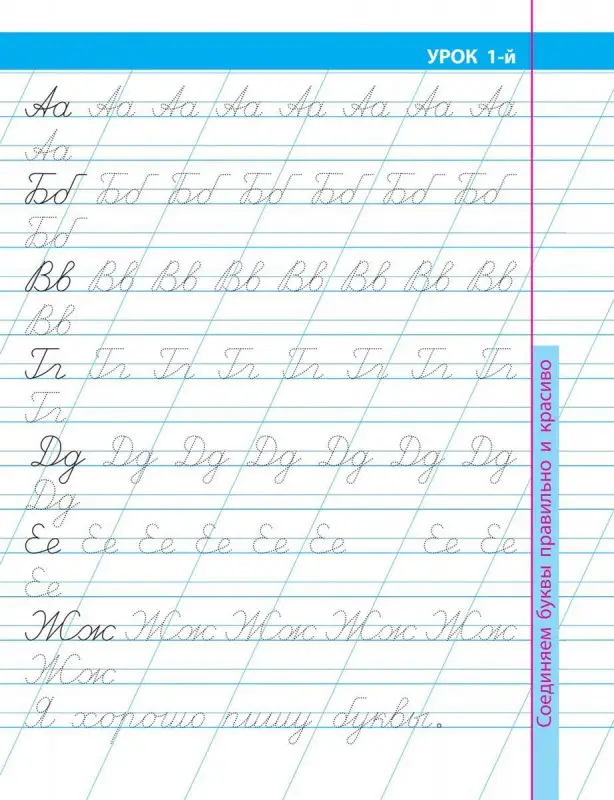 УРОК 1-й
Аа Аа Аа Аа Аа Аа Аа Аа
Аа
Бб Бб Бб Бб Бб Бб Бб
Бб
Вв Вв Вв Вв Вв Вв Вв Вв
Вв
Гг Гг Гг Гг Гг Гг Гг Гг
Гг
Дд Дд Дд Дд Дд Дд Дд
Дд
Ее Ее Ее Ее Ее Ее Ее Ее
Ее
Жж Жж Жж Жж Жж
Жж
Я хорошо пишу буквы.
Соединяем буквы правильно и красиво